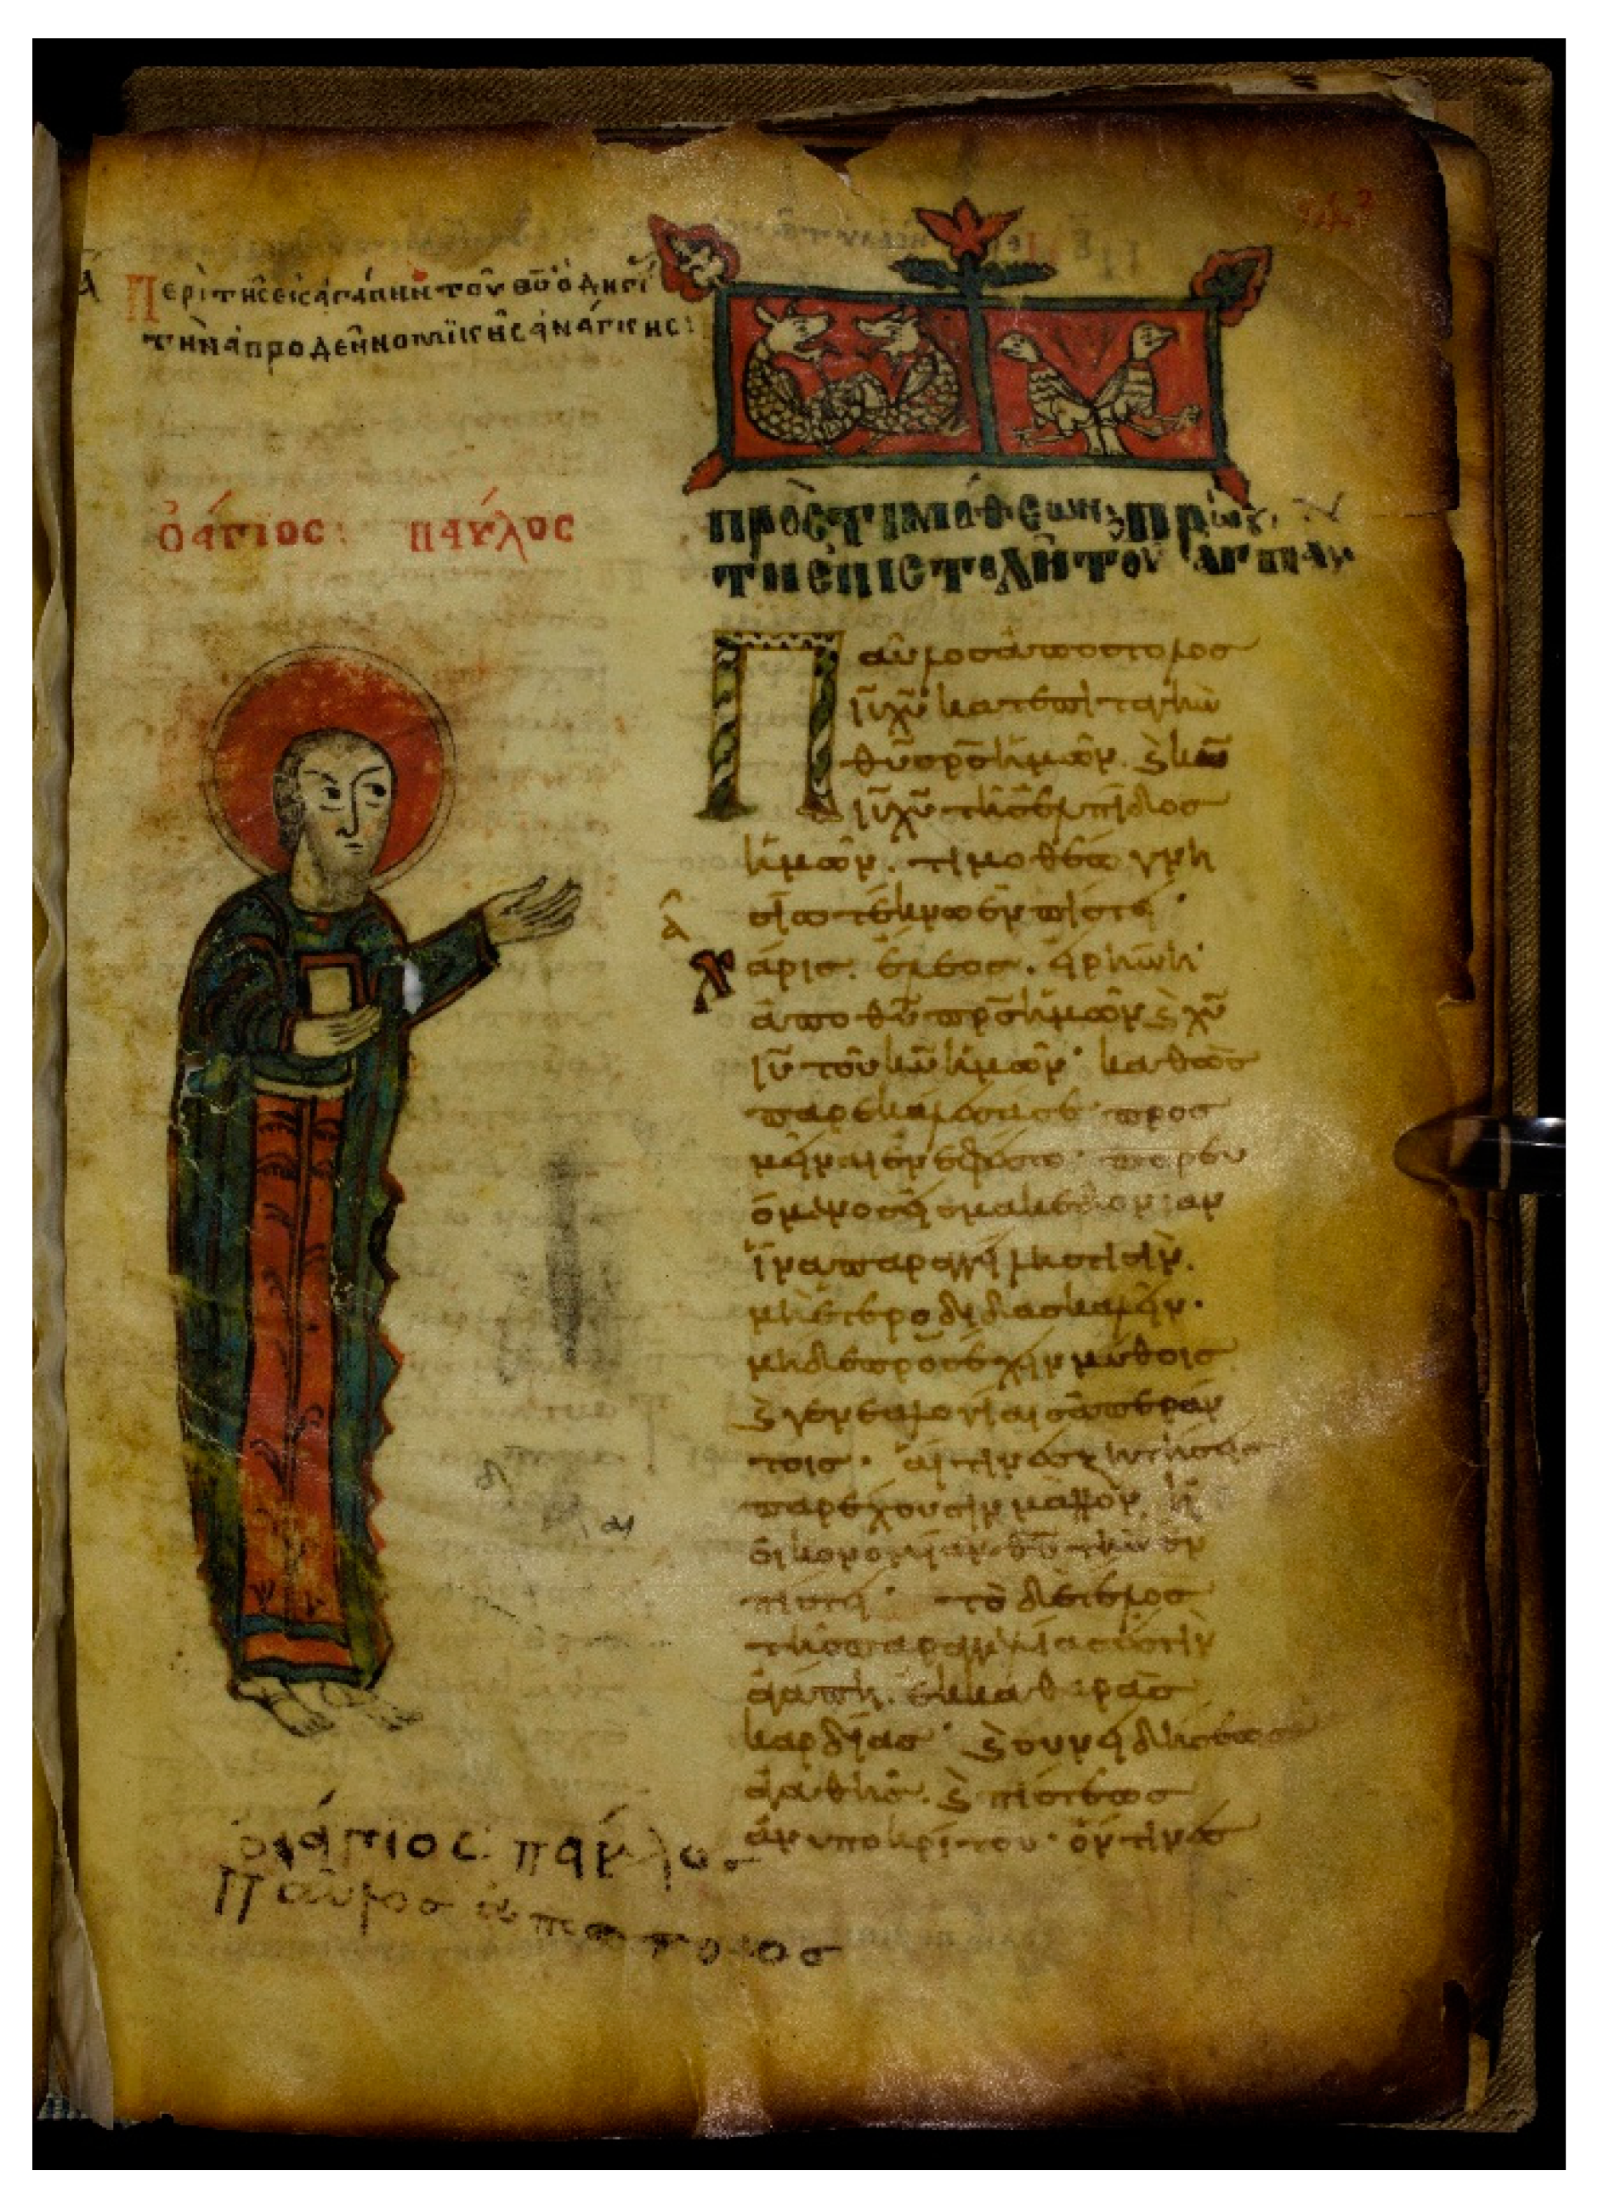 Α Περὶ τῆς εἰς ἀγάπην τοῦ θ̅υ̅ ὁδηγί
τὴν ἀπροδεῆ νομϊκῆς ἀνάγκης:
ὁ ἅγιος: παύλος
πρὸς τιμόθεον
τη ἐπιστολὴ τοῦ ἁγ παυ
Παῦλος ἀπόστολος
ι̅υ̅ χ̅υ̅ κατ ἐπιταγὴν
θ̅υ̅ σ̅ρ̅ς̅ ἡμῶν. ϗ κ̅υ̅
ι̅υ̅ χ̅υ̅ τῆς ἐλπίδος
ἡμῶν. τιμοθέω γνη
σίω τέκνω ἐν πίστει·
α χάρις. ἔλεος. εἰρήνη
ἀπὸ θ̅υ̅ π̅ρ̅ς̅ ἡμῶν ϗ χ̅υ̅
ι̅υ̅ τοῦ κ̅υ̅ ἡμῶν· καθὼς
παρεκάλεσά σε προς
μεῖναι ἐν ἐφέσω· πορευ
όμενος εἰς μακεδονίαν
ἵνα παραγγείλης τισὶν.
μὴ ἑτεροδιδασκαλεῖν.
μηδὲ προσέχειν μύθοις
ϗ γενεαλογίαις ἀπεράν
τοις· αἵτινες ζητήσεις
παρέχουσιν μᾶλλον ἢ
οἰκονομίαν θ̅υ̅ τὴν ἐν
πίστει· τὸ δὲ τέλος
τῆς παραγγελίας ἐστὶν
ἀγάπη. ἐκ καθαρᾶς
καρδίας· ϗ συνειδήσεως
ἀγαθῆς. ϗ πίστεως
ἀνυποκρίτου· ὧν τινες
ὁ ἅγιος παύλος
Παῦλος ἀποστολος